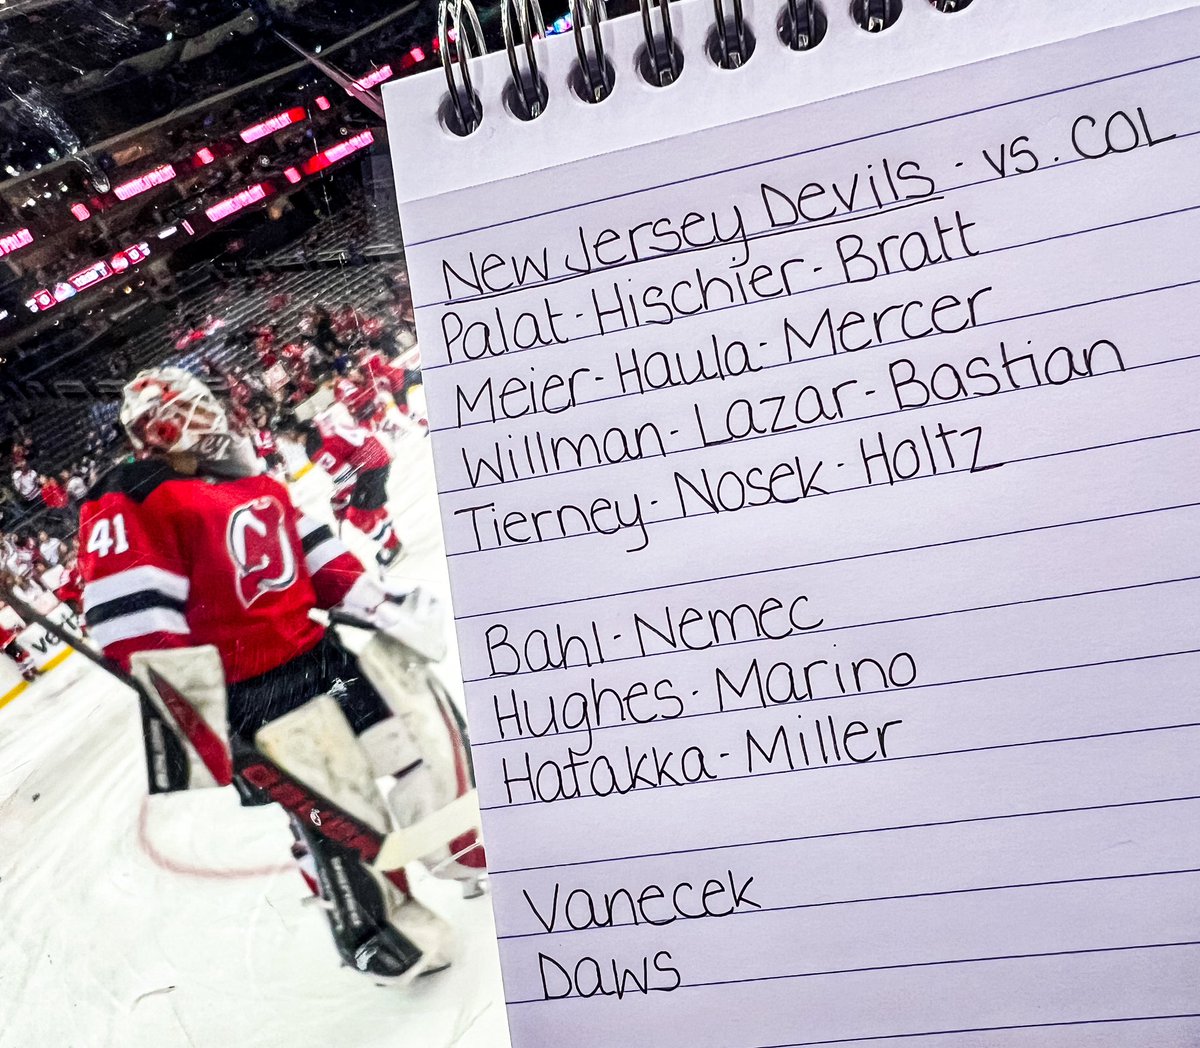 New Jersey Devils - vs. COL
Palat - Hischier - Bratt
Meier - Haula - Mercer
Willman - Lazar - Bastian
Tierney - Nosek - Holtz
Bahl - Nemec
Hughes - Marino
Hatakka - Miller
Vanecek
Daws
41